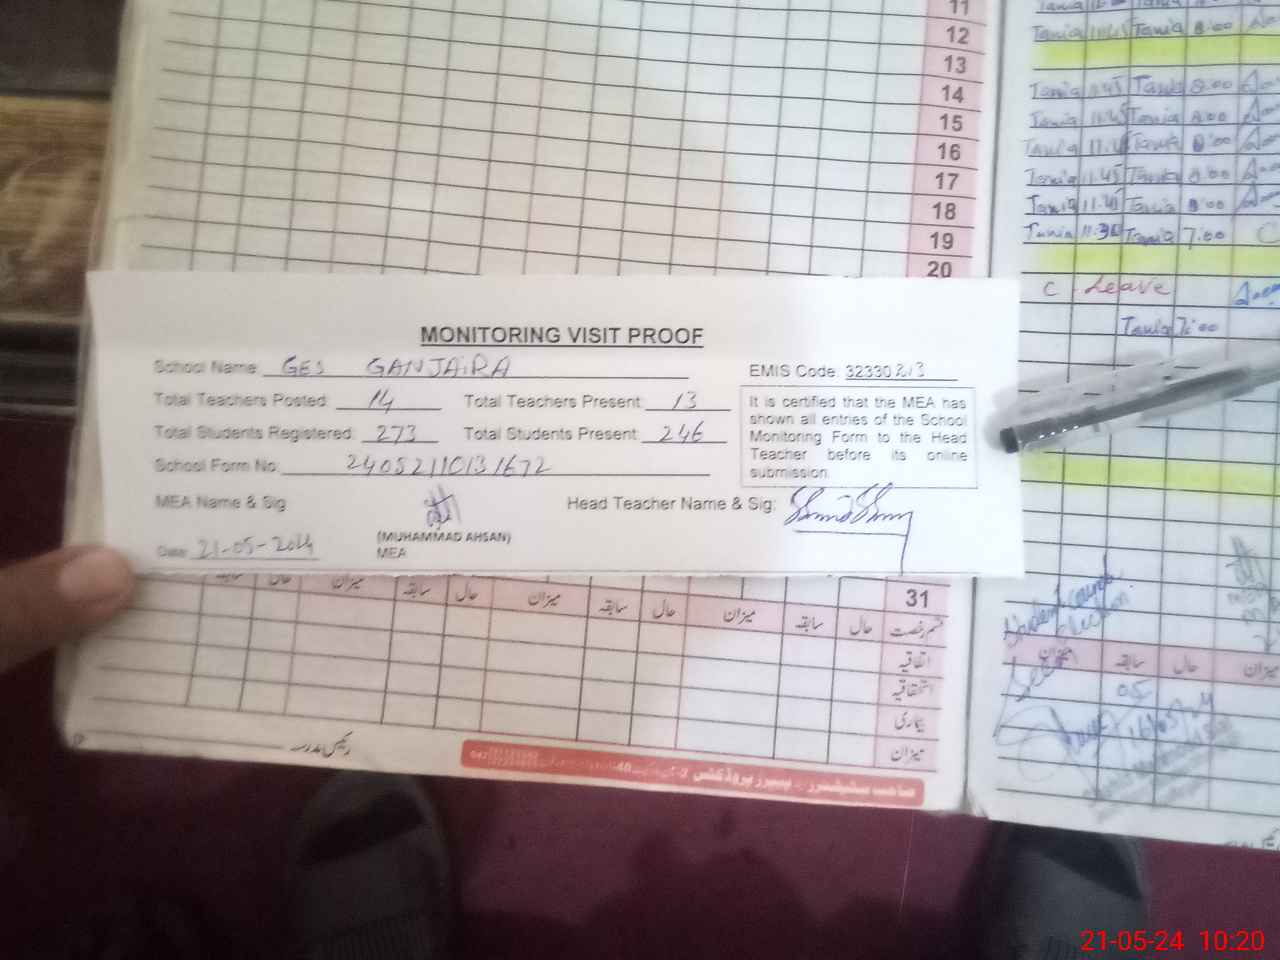 11
12
13
14
15
16
17
18
19
20
Tania 11.45 Tania 8:00
Tania 11.45 Tania 8:00
Tania 11.45 Tania 8:00
Tania 11.45 Tania 8:00
Tania 11.45 Tania 8:00
Tania 11.45 Tania 8:00
Tania 11.30 Tania 7.00 C
C Leave
Tania 7:00
MONITORING VISIT PROOF
School Name GES GANJAIRA
EMIS Code: 32330213
Total Teachers Posted: 14 Total Teachers Present: 13
Total Students Registered: 273 Total Students Present: 246
School Form No. 24052110131672
It is certified that the MEA has
shown all entries of the School
Monitoring Form to the Head
Teacher before its online
submission.
MEA Name & Sig Head Teacher Name & Sig:
(MUHAMMAD AHSAN)
MEA
Date: 21-05-2024
31
قسم رخصت حال سابقہ میزان حال سابقہ میزان حال سابقہ میزان حال سابقہ
اتفاقیہ
استحقاقیہ
بیماری
میزان
رئیس مدرسہ
Student council
election
میزان سابقہ حال میزان
Seen
05
21-05-24 10:20